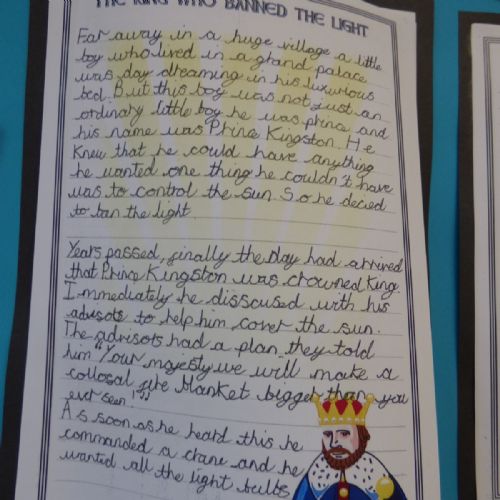 THE KING WHO BANNED THE LIGHT
Far away in a huge village a little
boy who lived in a grand palace
was day dreaming in his luxurious
bed. But this boy was not just an
ordinary little boy he was prince and
his name was Prince Kingston. He
knew that he could have anything
he wanted one thing he couldn't have
was to control the sun. So he decied
to ban the light
Years passed, finally the day had arrived
that Prince Kingston was crowned King.
Immediately he disscused with his
advisots to help him cover the sun.
The advisors had a plan they told
him "Your majesty we will make a
collosal blanket bigger than you
ever seen!"
As soon as he heard this he
commanded a crane and he
wanted all the light bulbs